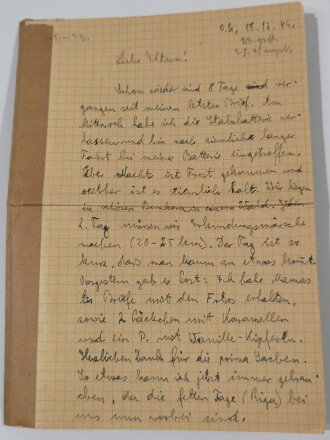 O.U., 18.12.44.
D-33.
Liebe Eltern!
Schon wieder sind 8 Tage ver-
gangen seit meinem letzten Brief. Am
Mittwoch habe ich die Stabsbatterie ver-
lassen und bin nach ziemlich langer
Fahrt bei meiner Batterie eingetroffen.
Über Nacht ist Frost gekommen und
seither ist es ziemlich kalt. Wir liegen
in Bunkern in einem Wald. Jeden
2. Tag müssen wir Erkundungsmärsche
machen (20-25 km). Der Tag ist so
kurz, dass man kaum zu etwas kommt.
Vorgestern gab es Post: Ich habe Mamas
Briefe mit den Fotos erhalten,
sowie 2 Päckchen mit Karamellen
und ein P. mit Vanille-Kipferln.
Herzlichen Dank für die prima Sachen.
So etwas kann ich jetzt immer gebrau-
chen, da die fetten Tage (Riga) bei
uns nun vorbei sind.